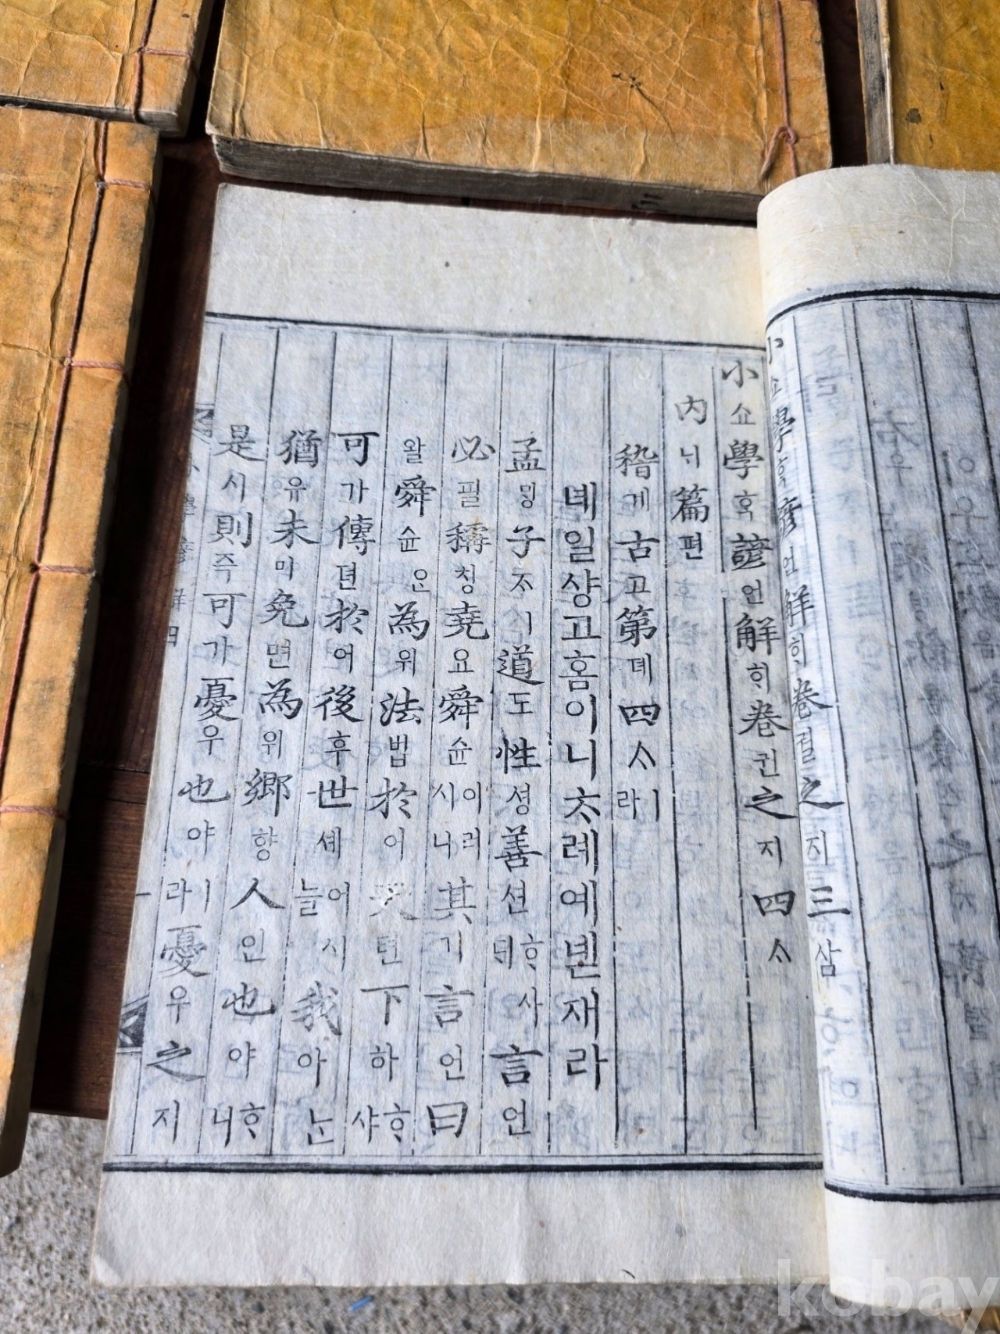 小쇼學ᄒᆞᆨ諺언解ᄒᆡ卷권之지三삼
小쇼學ᄒᆞᆨ諺언解ᄒᆡ卷권之지四ᄉᆞ
內ᄂᆡ篇편
稽계古고第뎨四ᄉᆞㅣ라
녜일샹고홈이니ᄎᆞ례예넫재라
孟ᄆᆡᆼ子ᄌᆞㅣ道도性셩善션ᄒᆞ샤ᄃᆡ言언
必필稱칭堯요舜슌이러시니其기言언曰
왈舜슌요為위法법於어天텬下하ᄒᆞ샤
可가傳뎐於어後후世셰어시늘我아ᄂᆞᆫ
猶유未미免면為위鄕향人인也야ᄒᆞ니
是시則즉可가憂우也야ㅣ라憂우之지
kobay